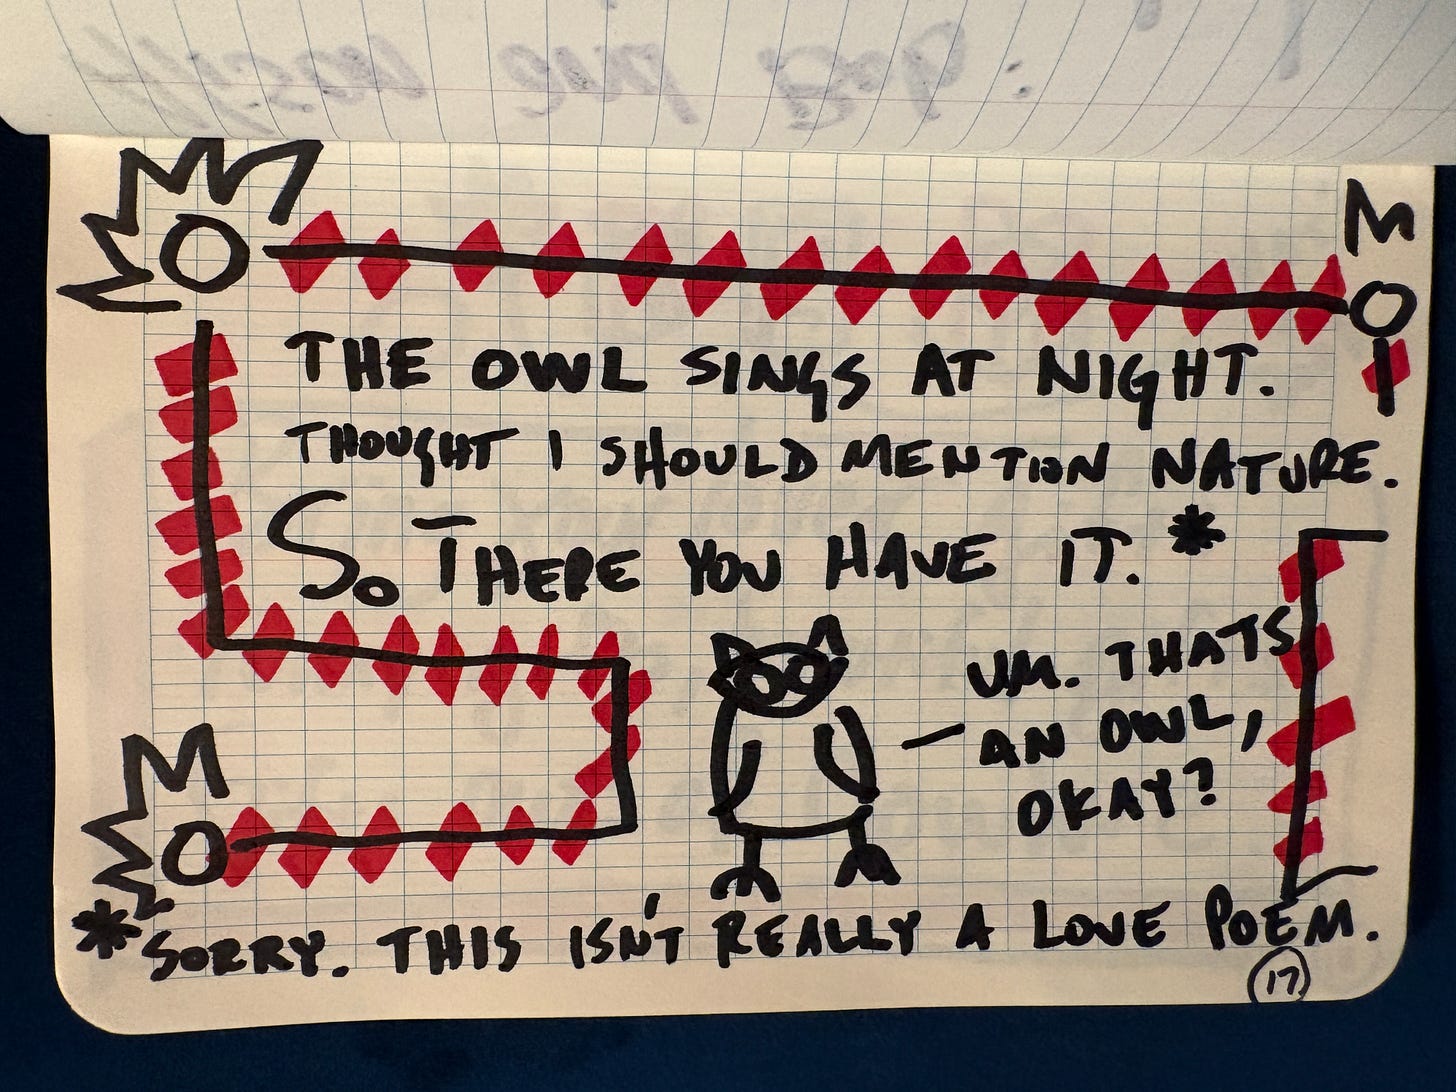 THE OWL SINGS AT NIGHT.
THOUGHT I SHOULD MENTION NATURE.
So THERE YOU HAVE IT.*
UM. THATS
— AN OWL,
OKAY?
*SORRY. THIS ISN'T REALLY A LOVE POEM.
17